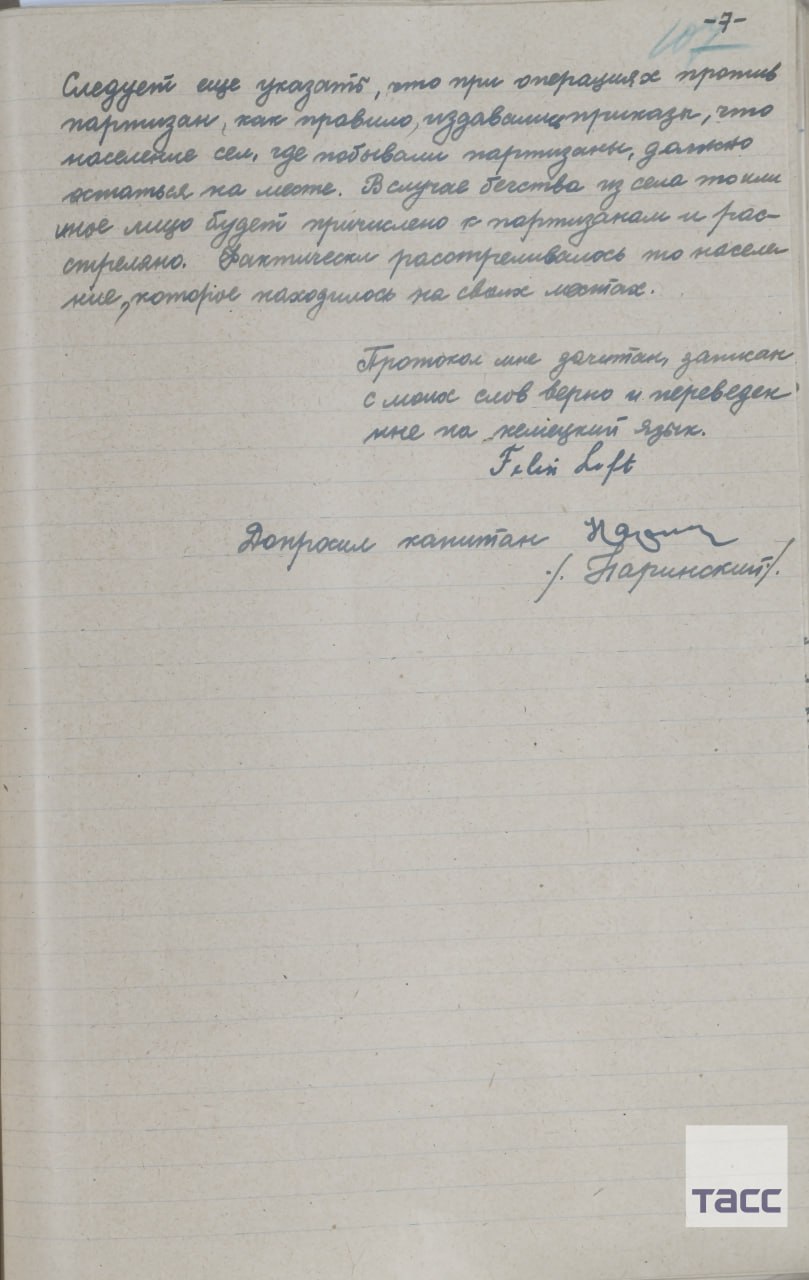 -7-
107
Следует еще указать, что при операциях против
партизан, как правило, издавались приказы, что
население сел, где побывали партизаны, должно
остаться на месте. В случае бегства из села то или
иное лицо будет причислено к партизанам и рас-
стреляно. Фактически расстреливалось то населе
ние, которое находилось на своих местах.
Протокол мне зачитан, записан
с моих слов верно и переведен
мне на немецкий язык.
Felix Loft
Допросил капитан
/. Паринский/.
тасс